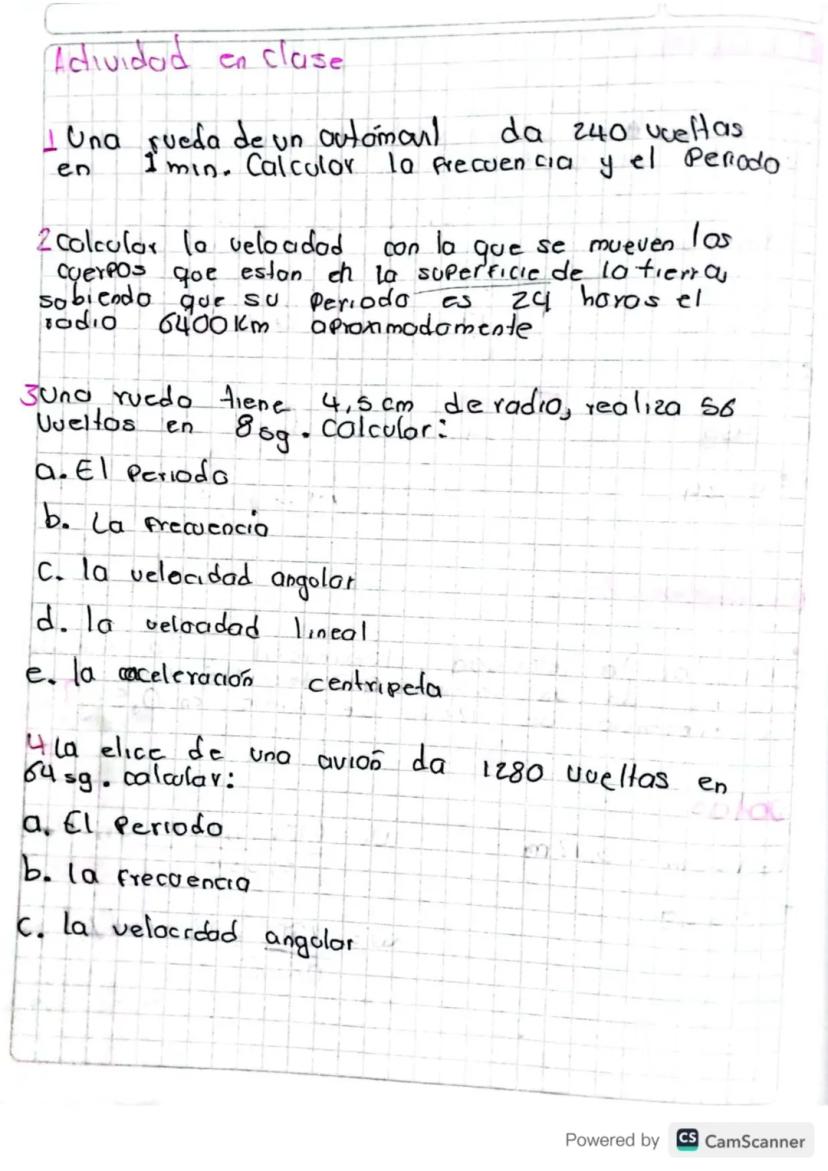 Actividad en clase
1 Una rueda de un automovil da 240 vueltas
en 1 min. Calcular la frecuencia y el Periodo
2 calcular la velocidad con la que se mueven los
cuerpos que estan en la superficie de la tierra,
sabiendo que su periodo es 24 horas el
radio 6400 Km aproximadamente
3 Una rueda tiene 4,5 cm de radio, realiza 56
Vueltas en 8 sg. Calcular:
a. El Periodo
b. La frecuencia
c. la velocidad angular
d. la velocidad lineal
e. la aceleración centripeta
4 La elice de una avión da 1280 vueltas en
64 sg. calcular:
a. El Periodo
b. la frecuencia
c. la velocidad angular
Powered by CS CamScanner